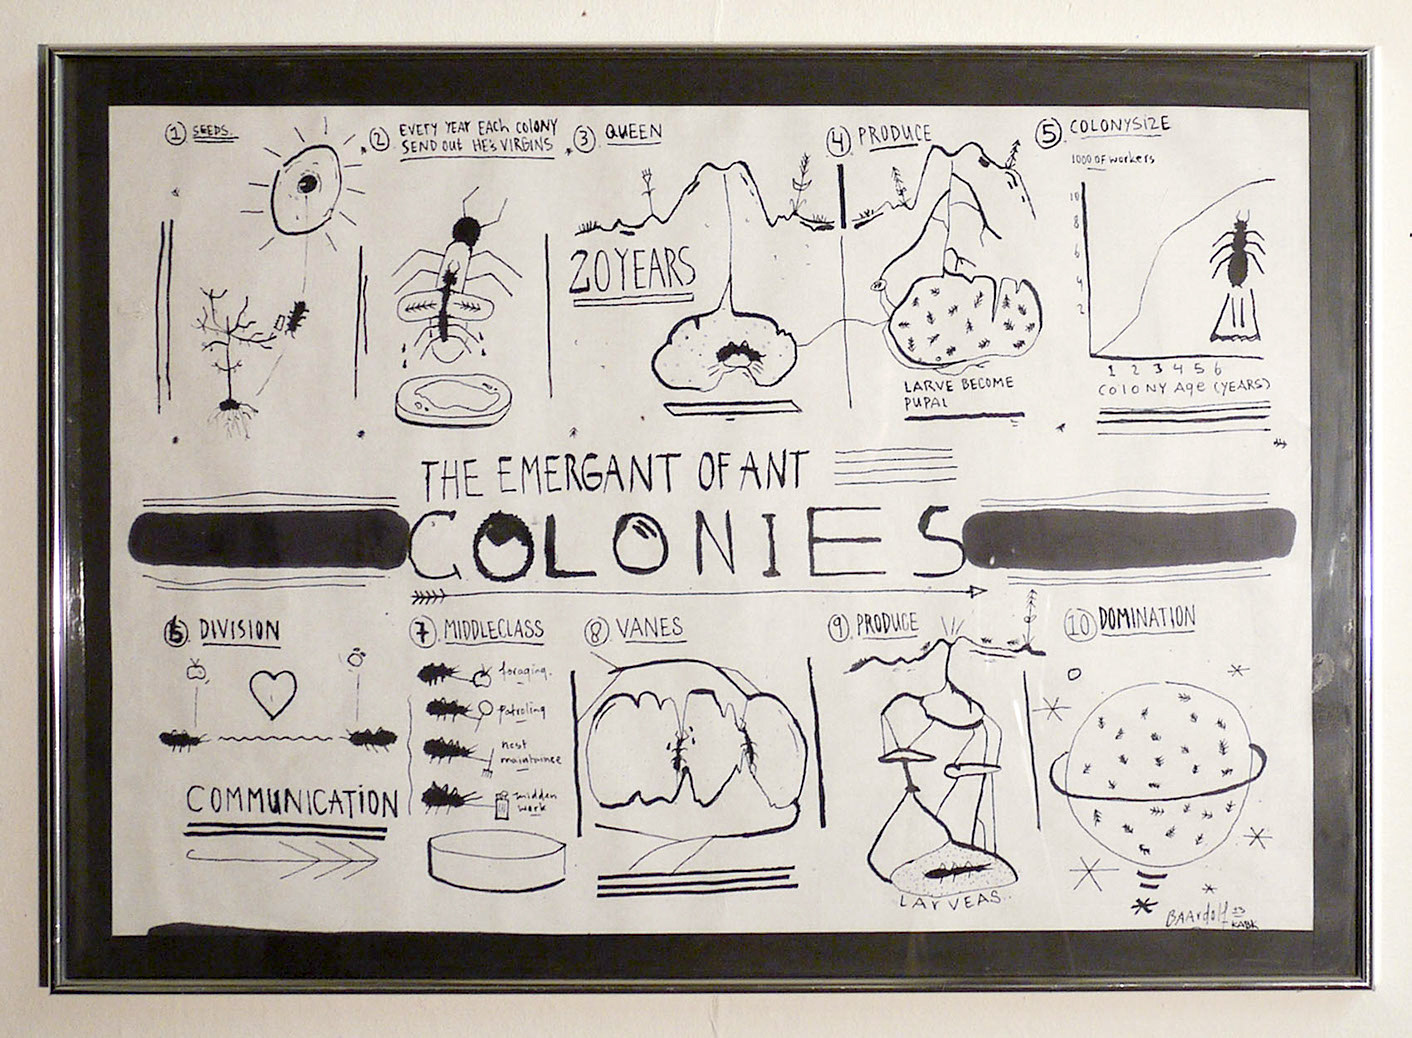 1 SEEDS.
2 EVERY YEAR EACH COLONY
SEND OUT HE'S VIRGINS
3 QUEEN
20 YEARS
4 PRODUCE
LARVE BECOME
PUPAL
5 COLONYSIZE
1000 OF workers
10
8
6
4
2
1 2 3 4 5 6
COLONY Age (YEARS)
THE EMERGANT OF ANT
COLONIES
6 DIVISION
COMMUNICATION
7 MIDDLECLASS
foraging.
patroling
nest
maintainee
midden
work
8 VANES
9 PRODUCE
LARVEAS
10 DOMINATION
BAArdolf
KABK